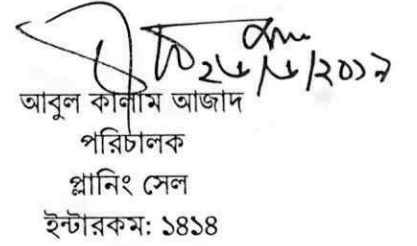 ২৬/৬/২০১৯
আবুল কালাম আজাদ
পরিচালক
প্লানিং সেল
ইন্টারকম: ১৪১৪